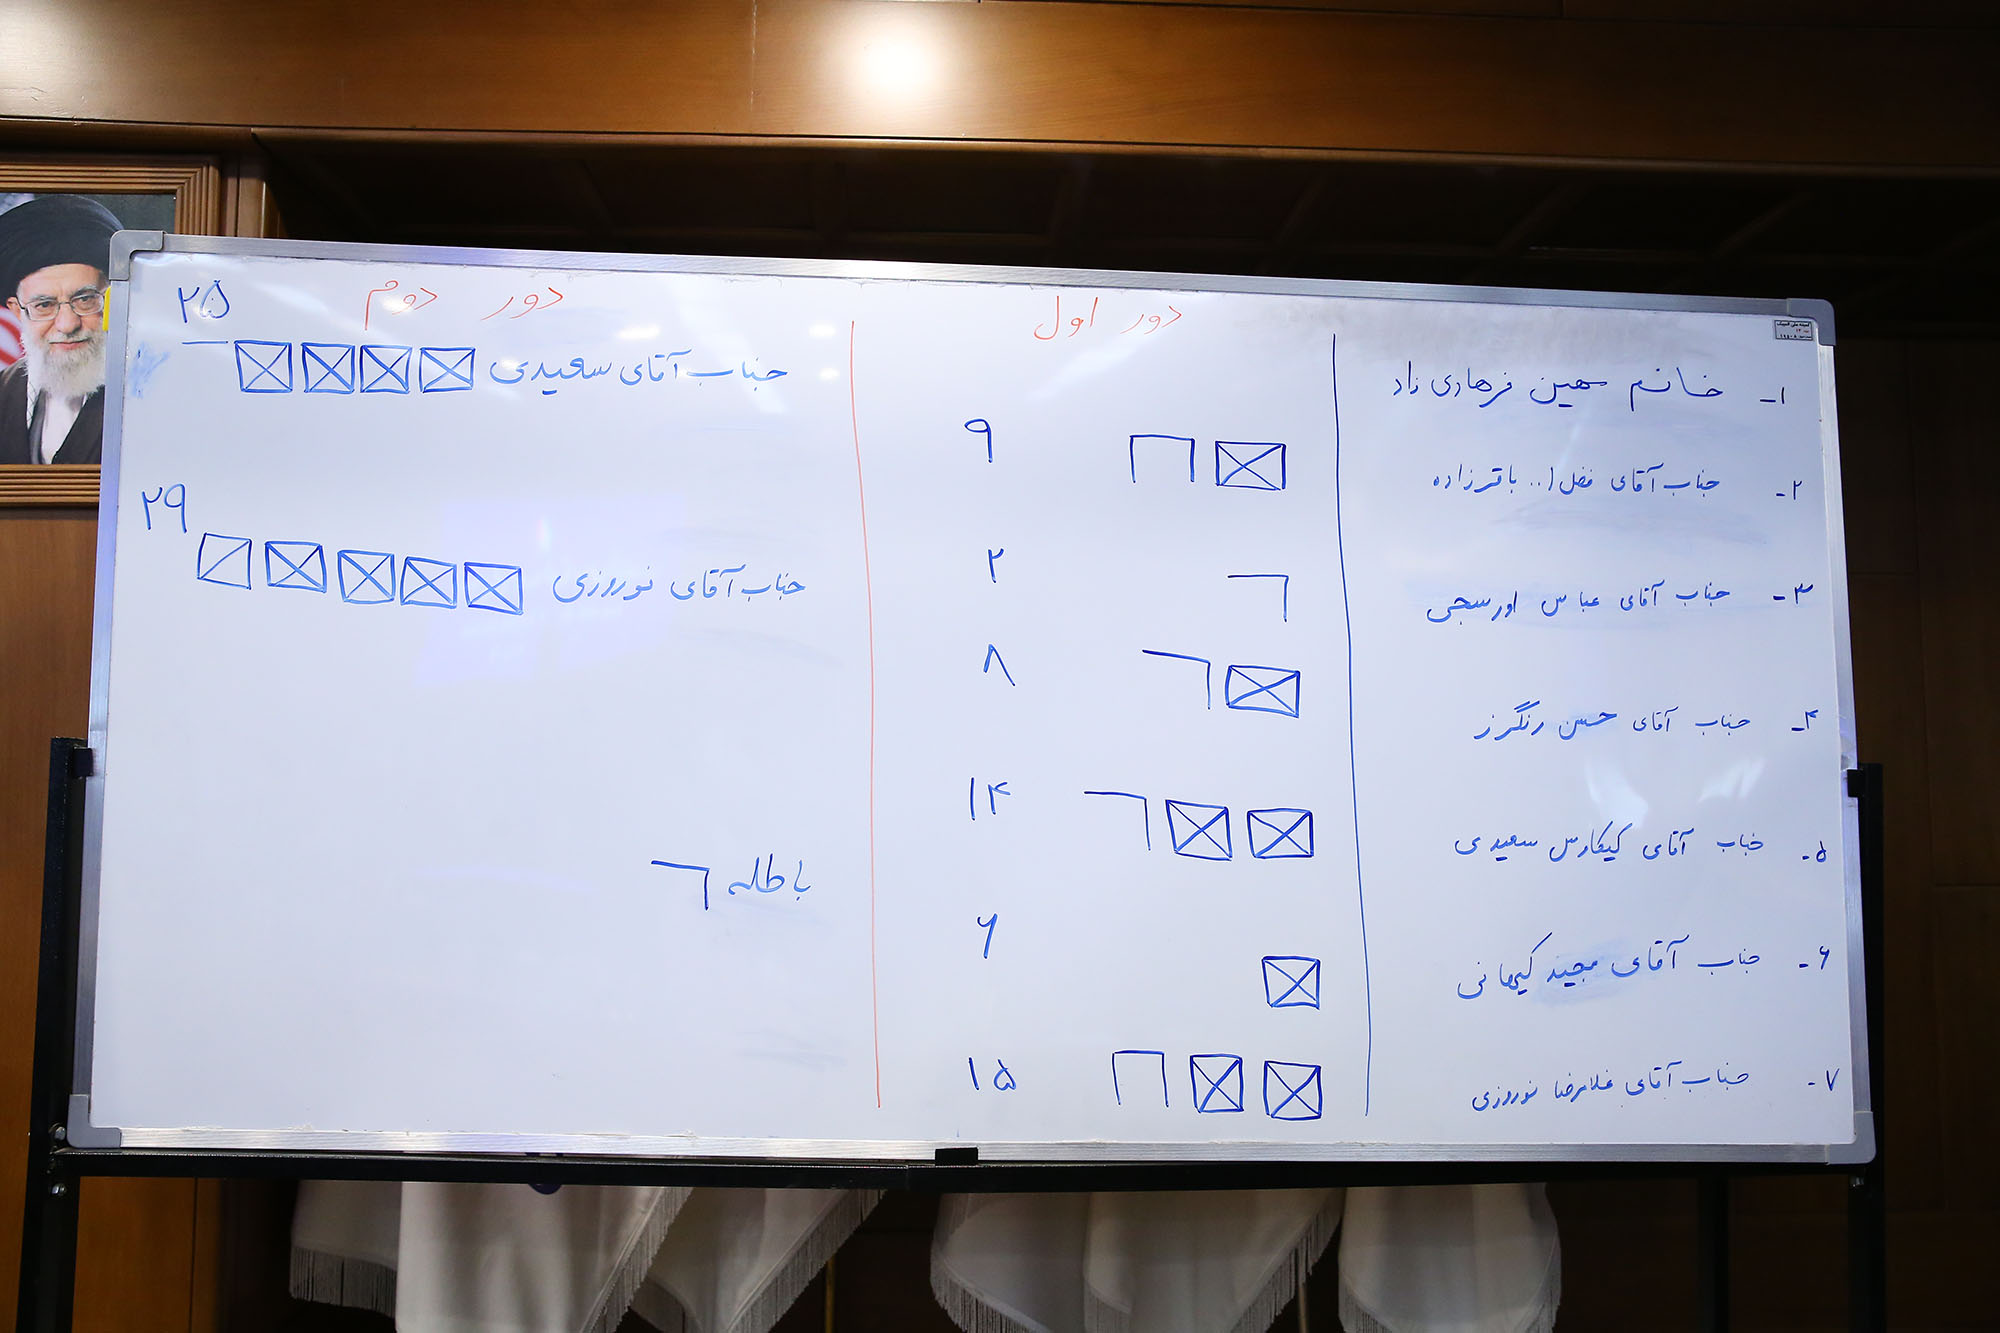 دور اول
۱- خانم مهین فرهادی زاد
۲- جناب آقای فضل ا... باقرزاده ۹
۳- جناب آقای عباس اورسجی ۲
۴- جناب آقای حسن رنگرز ۸
۵- جناب آقای کیکاوس سعیدی ۱۴
۶- جناب آقای مجید کیهانی ۶
۷- جناب آقای غلامرضا نوروزی ۱۵
دور دوم
جناب آقای سعیدی ۲۵
جناب آقای نوروزی ۲۹
باطله